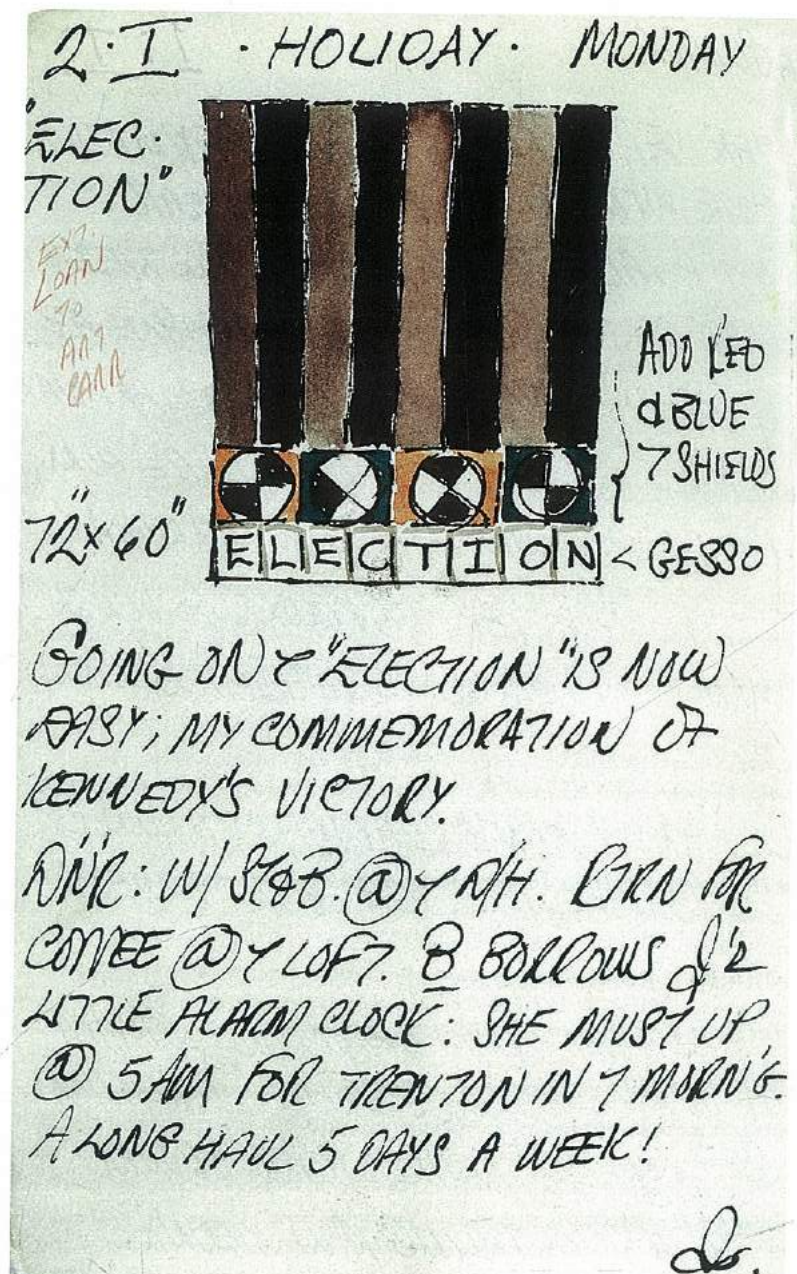 2·I · HOLIDAY · MONDAY
"ELEC-
TION"
EXT.
LOAN
TO
ART
CARR
ADD RED
& BLUE
7 SHIELDS
72" x 60"
ELECTION < GESSO
GOING ON Y "ELECTION" IS NOW
EASY; MY COMMEMORATION OF
KENNEDY'S VICTORY.
DN'R: W/ ST&B. @ Y N/H. RTRN FOR
COFFEE @ Y LOFT. B BORROWS
LITTLE ALARM CLOCK: SHE MUST UP
@ 5 AM FOR TRENTON IN 7 MORN'G.
A LONG HAUL 5 DAYS A WEEK!